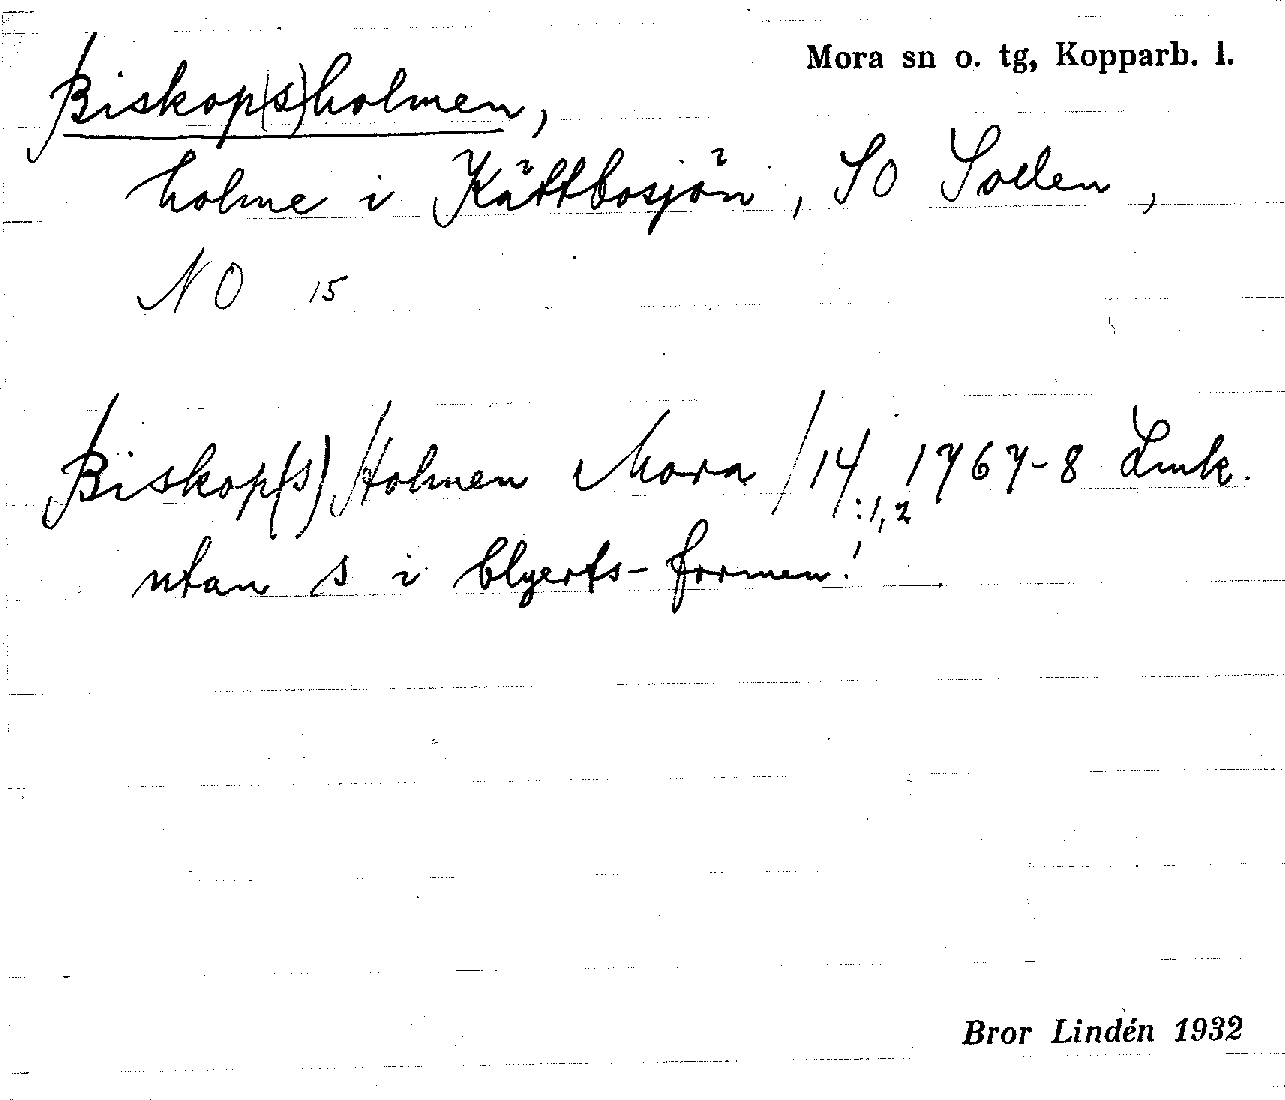 Mora sn o. tg, Kopparb. l.
Biskop(s)holmen,
holme i Kättbosjön, SO Sollen,
NO 15
Biskop(s)Holmen Mora /14 1767-8 Lmk.
:1,2
utan s i blyerts-formen!
Bror Lindén 1932